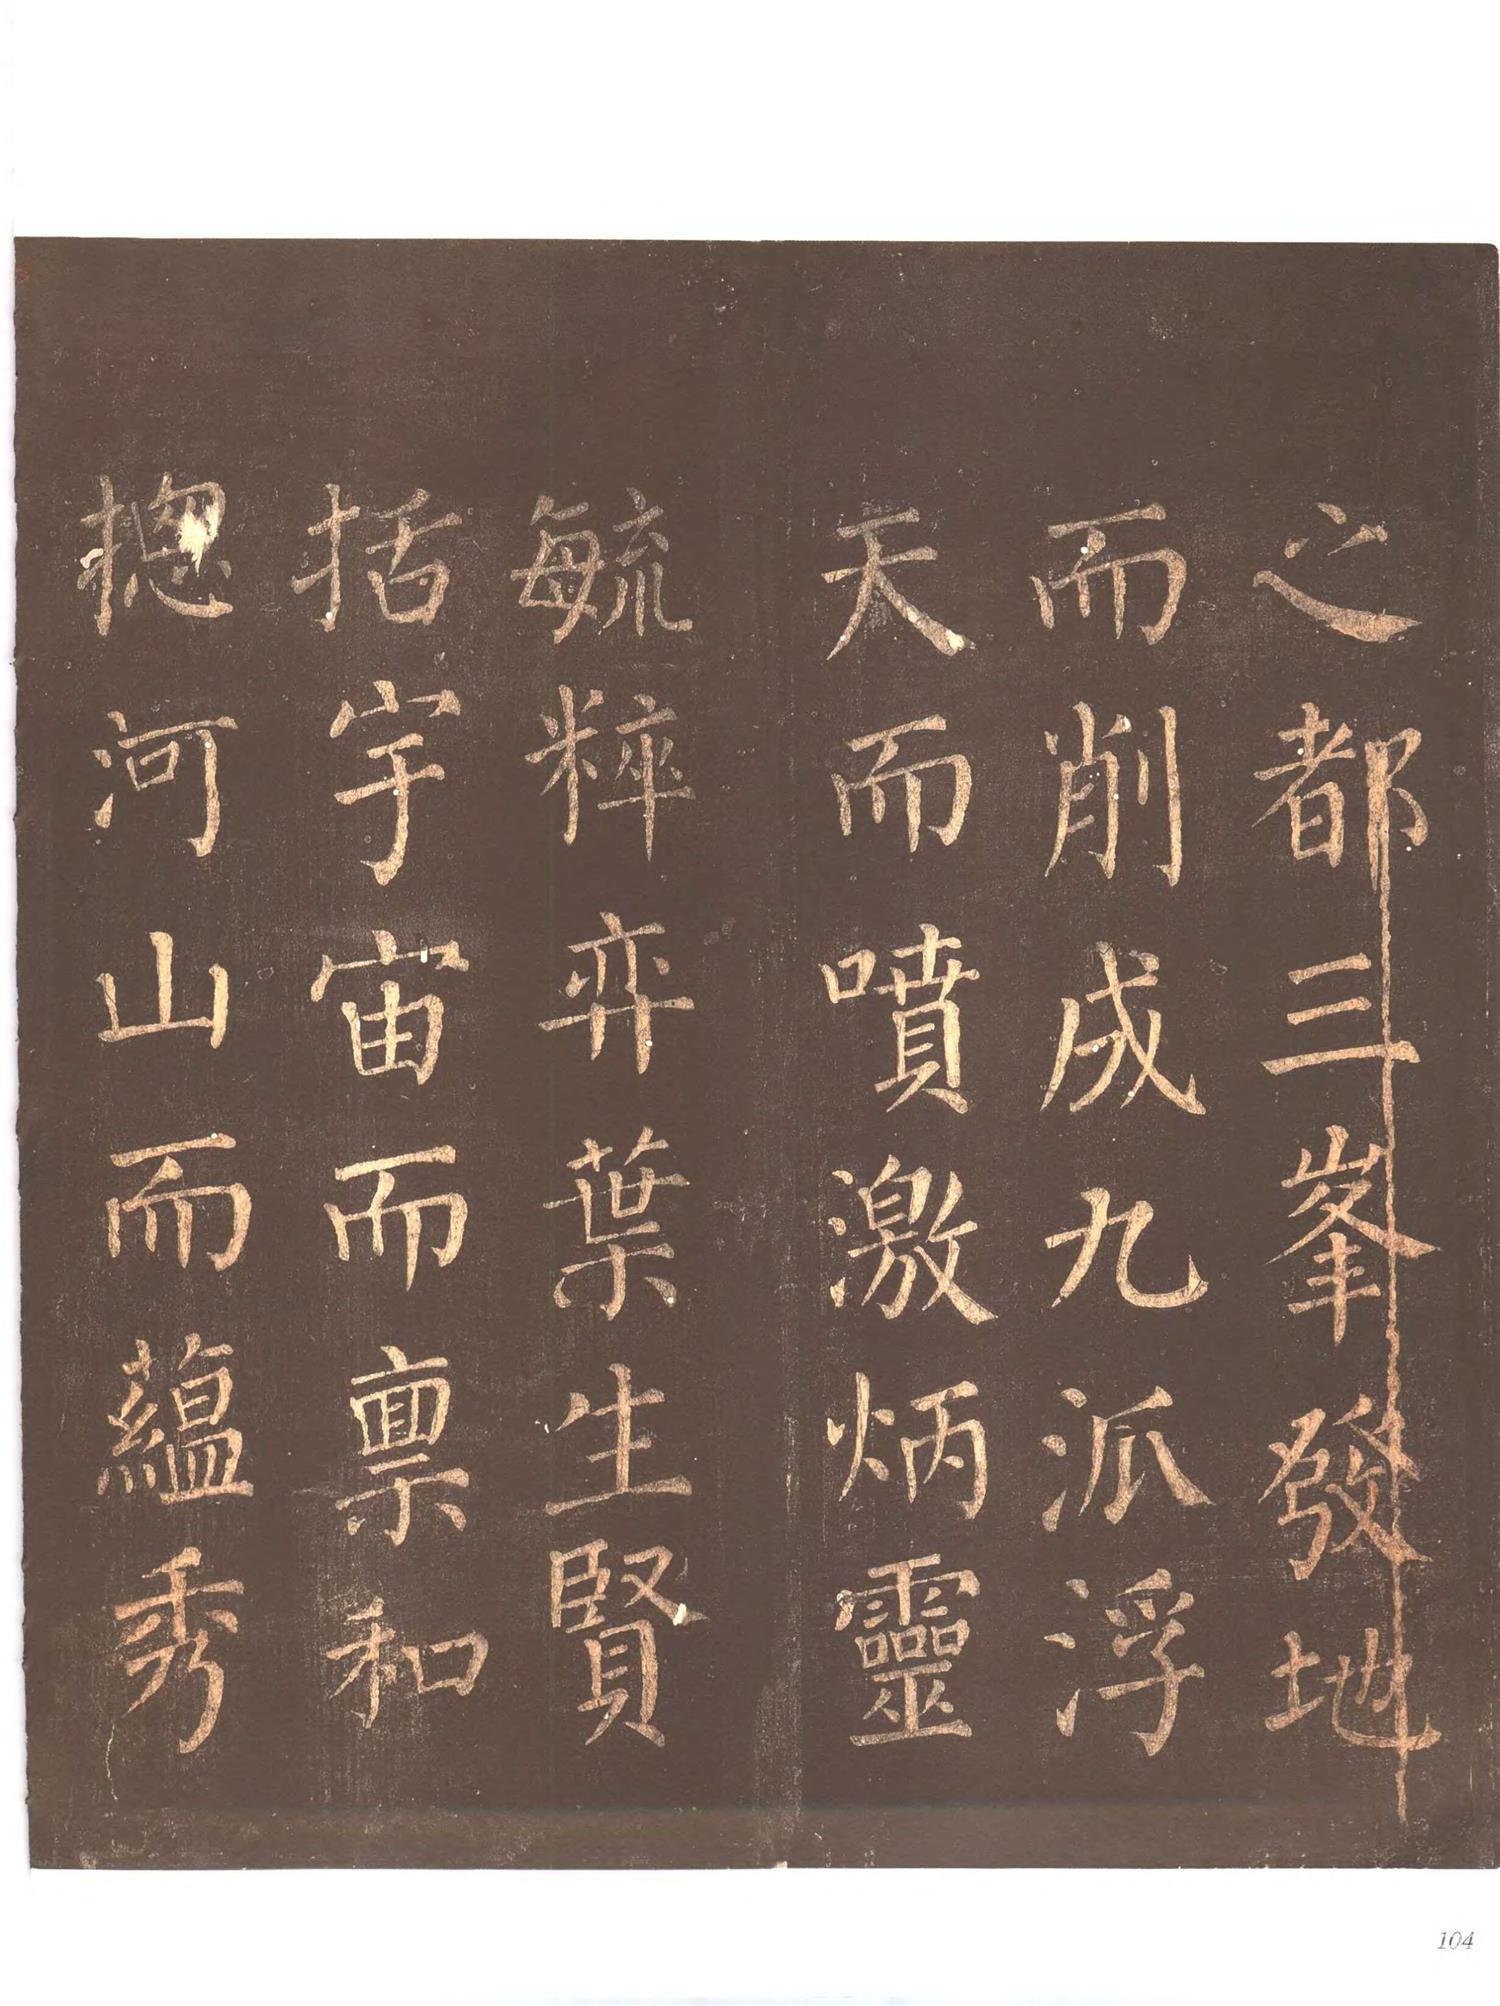 之都三峯發地
而削成九派浮
天而噴激炳靈
毓粹弈葉生賢
括宇宙而禀和
揔河山而蘊秀
104